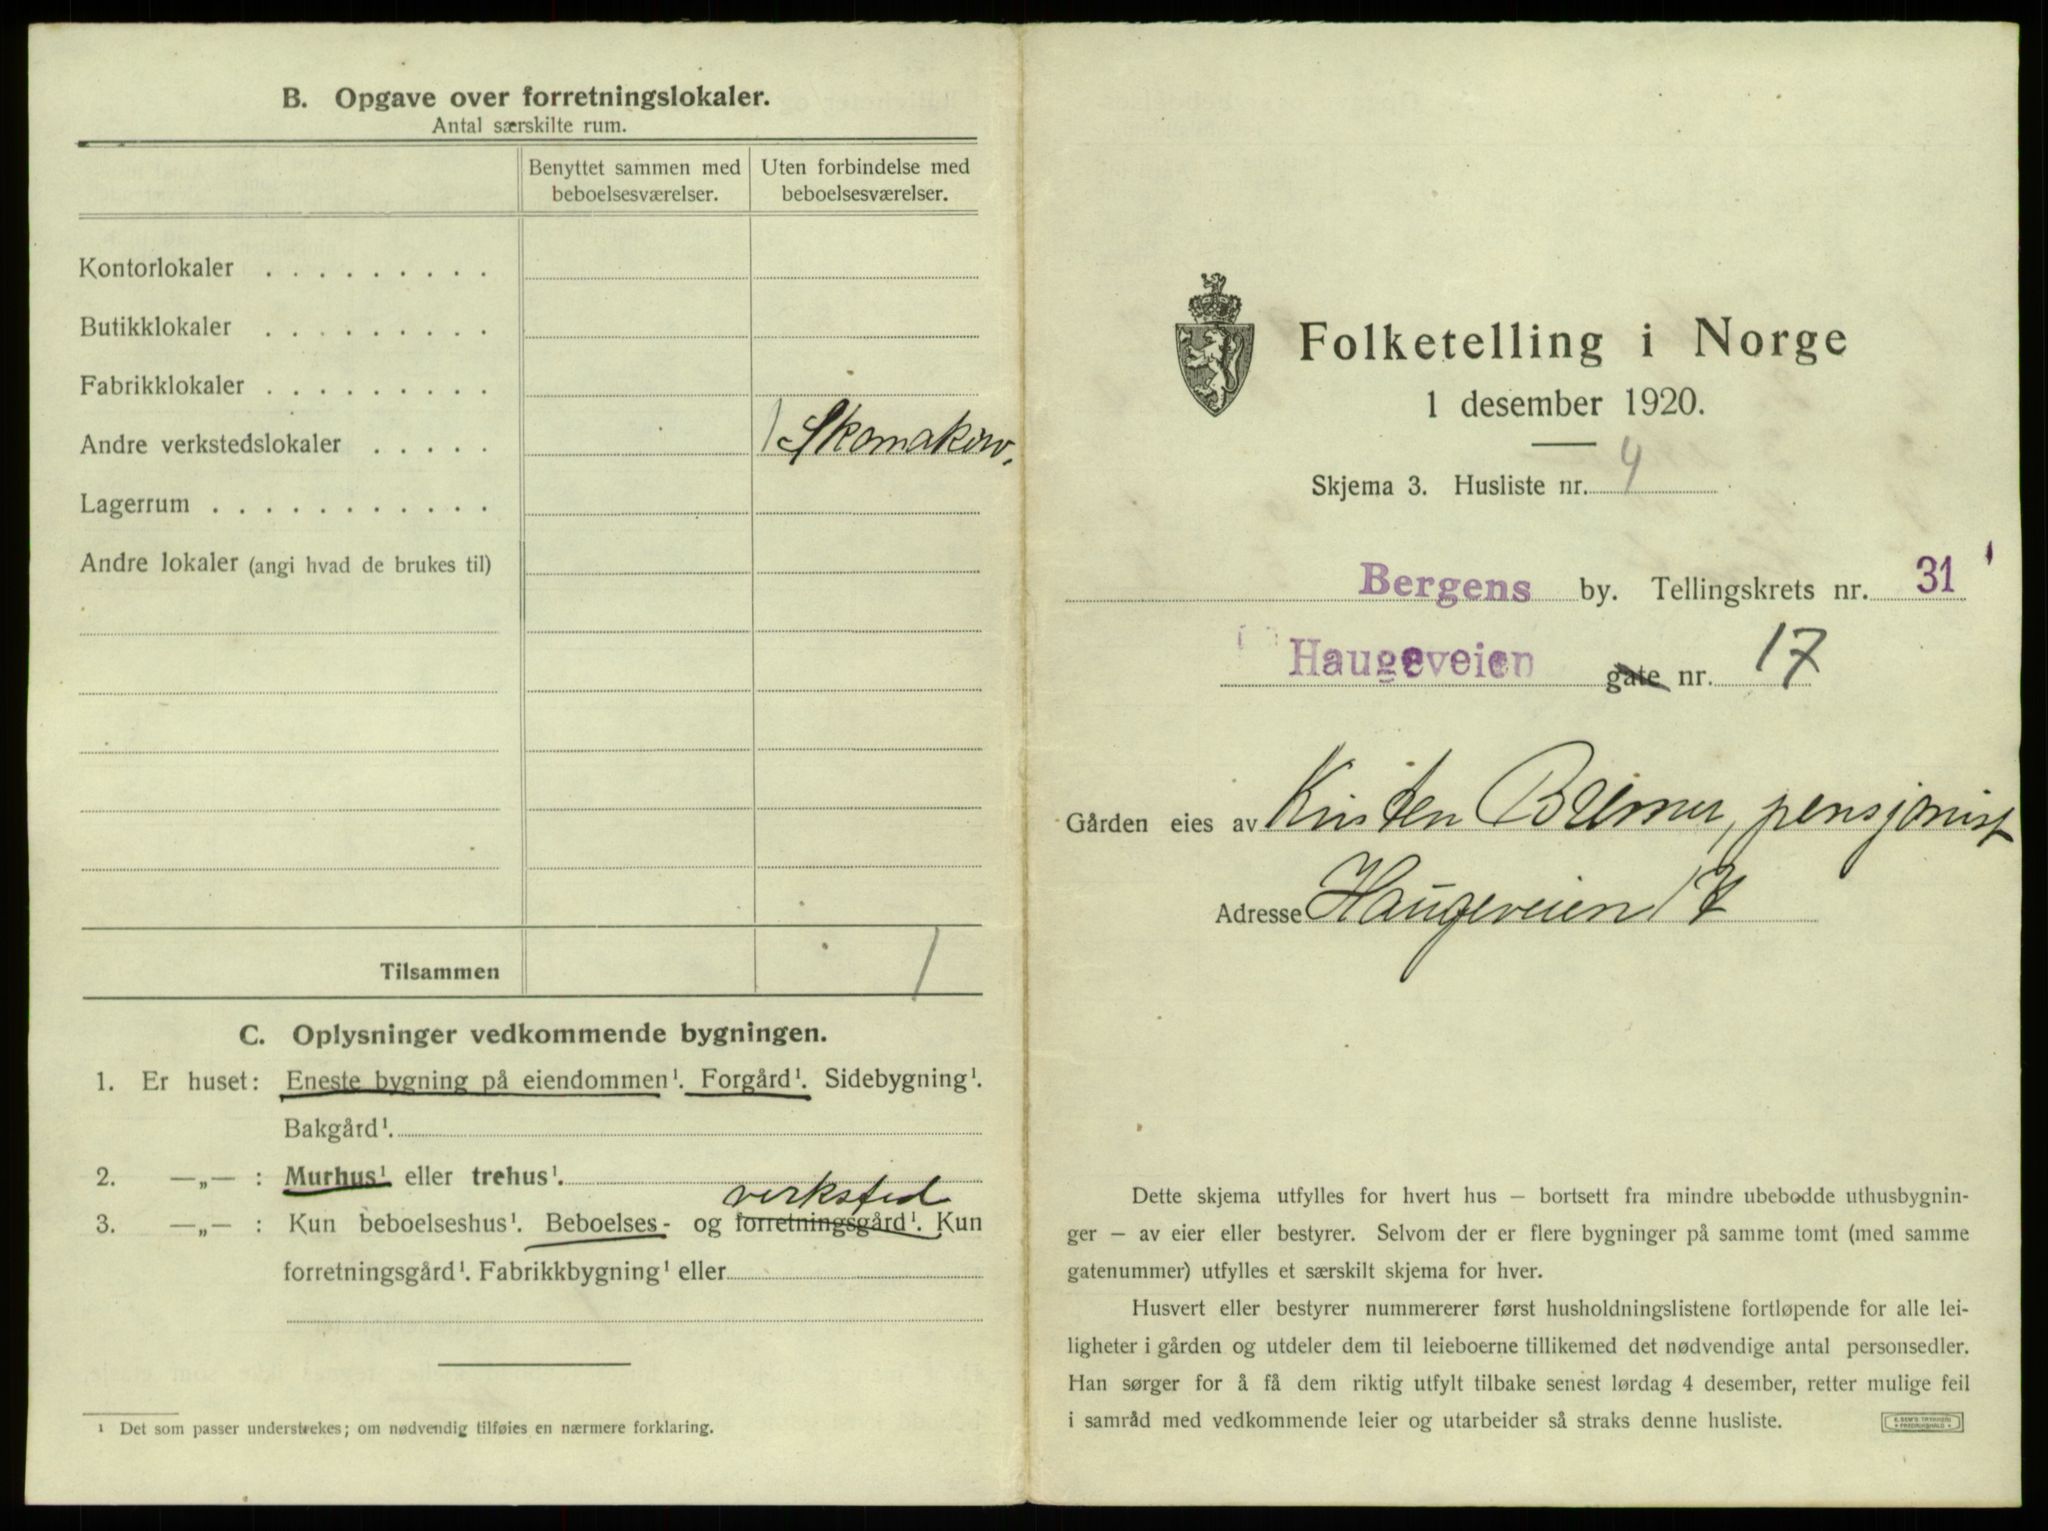 B. Opgave over forretningslokaler.
Antal særskilte rum.
Benyttet sammen med beboelsesværelser.
Uten forbindelse med beboelsesværelser.
Kontorlokaler . . . . . . . . .
Butikklokaler . . . . . . . . .
Fabrikklokaler . . . . . . . . .
Andre verkstedslokaler . . . . . 1 Skomakerv.
Lagerrum . . . . . . . . . . .
Andre lokaler (angi hvad de brukes til)
Tilsammen 1
C. Oplysninger vedkommende bygningen.
1. Er huset: Eneste bygning på eiendommen¹. Forgård¹. Sidebygning¹.
Bakgård¹.
2. —„— : Murhus¹ eller trehus¹.
verksted
3. —„— : Kun beboelseshus¹. Beboelses- og forretningsgård¹. Kun
forretningsgård¹. Fabrikkbygning¹ eller
¹ Det som passer understrekes; om nødvendig tilføies en nærmere forklaring.
Folketelling i Norge
1 desember 1920.
Skjema 3. Husliste nr. 4
Bergens by. Tellingskrets nr. 31
Haugeveien gate nr. 17
Gården eies av Kirsten Bremer, pensjonist
Adresse Haugeveien 17
Dette skjema utfylles for hvert hus – bortsett fra mindre ubebodde uthusbygnin-
ger – av eier eller bestyrer. Selvom der er flere bygninger på samme tomt (med samme
gatenummer) utfylles et særskilt skjema for hver.
Husvert eller bestyrer nummererer først husholdningslistene fortløpende for alle lei-
ligheter i gården og utdeler dem til leieboerne tillikemed det nødvendige antal personsedler.
Han sørger for å få dem riktig utfylt tilbake senest lørdag 4 desember, retter mulige feil
i samråd med vedkommende leier og utarbeider så straks denne husliste.